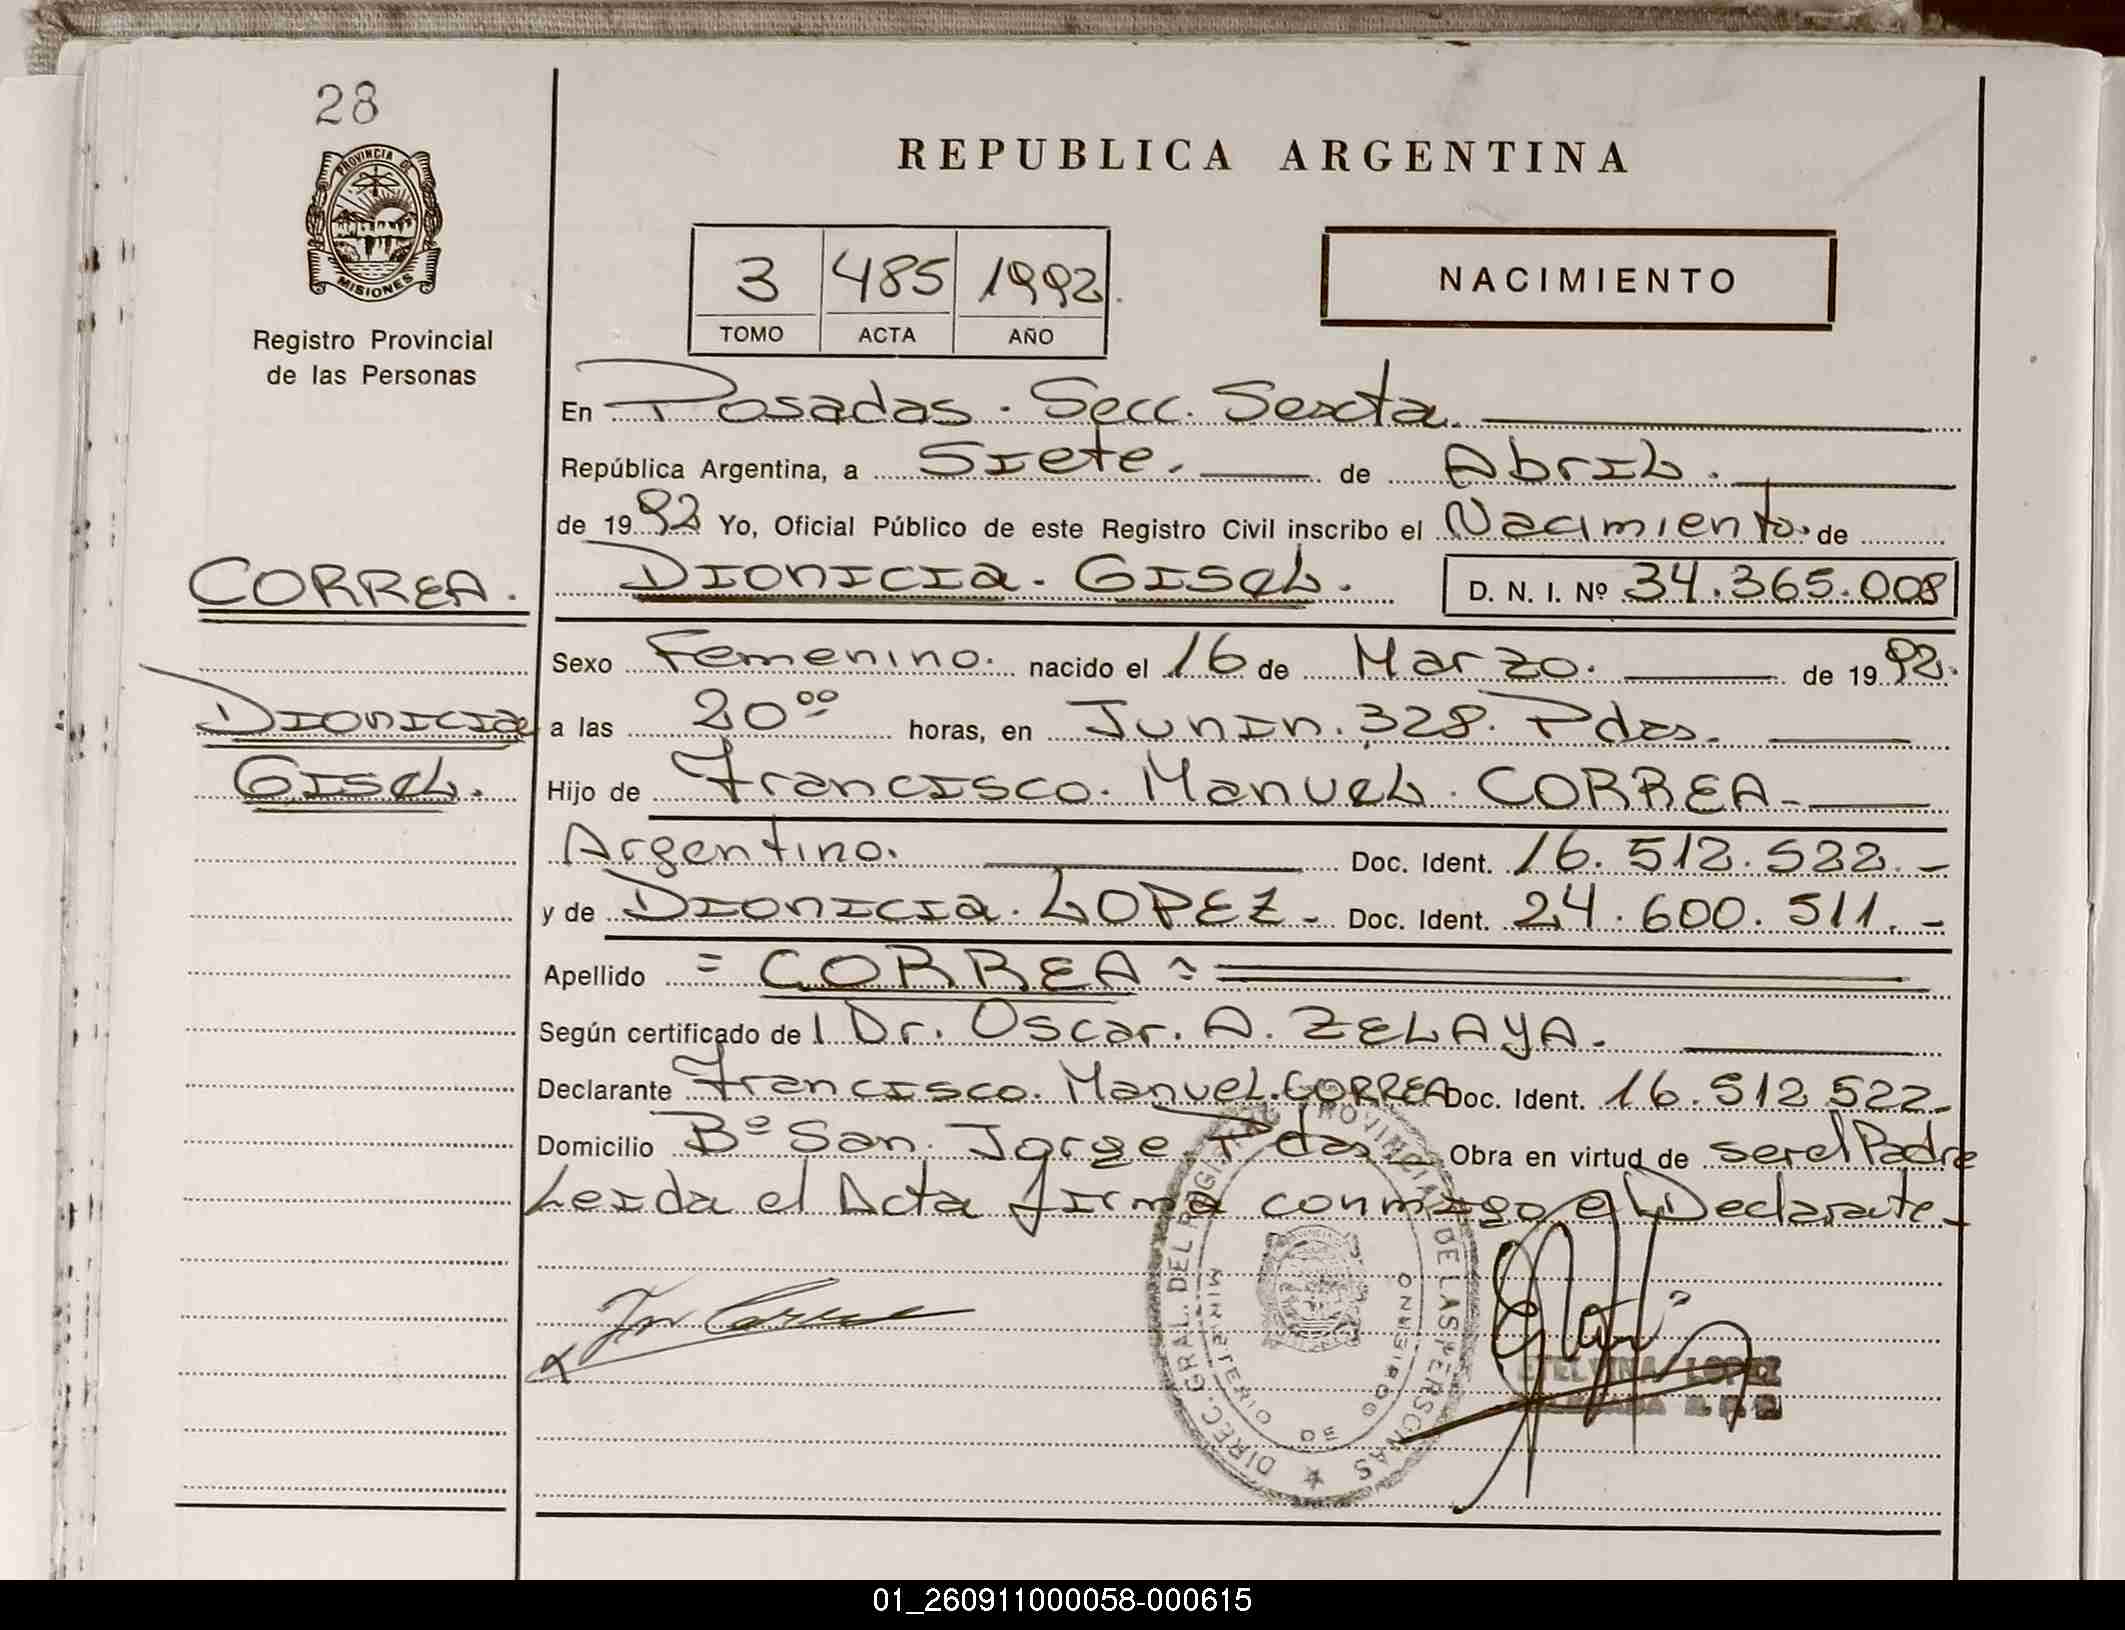 28
PROVINCIA DE
MISIONES
Registro Provincial
de las Personas
REPUBLICA ARGENTINA
3 485 1992.
TOMO ACTA AÑO
NACIMIENTO
En Posadas. Secc. Sexta.
República Argentina, a Siete. de Abril.
de 1992 Yo, Oficial Público de este Registro Civil inscribo el Nacimiento. de
CORREA.
Dionicia. Gisel. D. N. I. Nº 34.365.008
Sexo Femenino. nacido el 16 de Marzo. de 1992.
Dionicia
a las 20ºº horas, en Junin. 328. Pdas.
Gisel.
Hijo de Francisco. Manuel. CORREA-
Argentino. Doc. Ident. 16. 512. 522.-
y de Dionicia. LOPEZ- Doc. Ident. 24. 600. 511.-
Apellido = CORREA =
Según certificado de l Dr. Oscar. A. ZELAYA.
Declarante Francisco. Manuel. CORREA Doc. Ident. 16. 512 522-
Domicilio Bº San. Jorge Pdas Obra en virtud de ser el Padre
Leida el Acta firma conmigo el Declarante-
DIREC. GRAL. DEL REGISTRO PROVINCIAL DE LAS PERSONAS
MINISTERIO DE GOBIERNO
LOPEZ
01_260911000058-000615